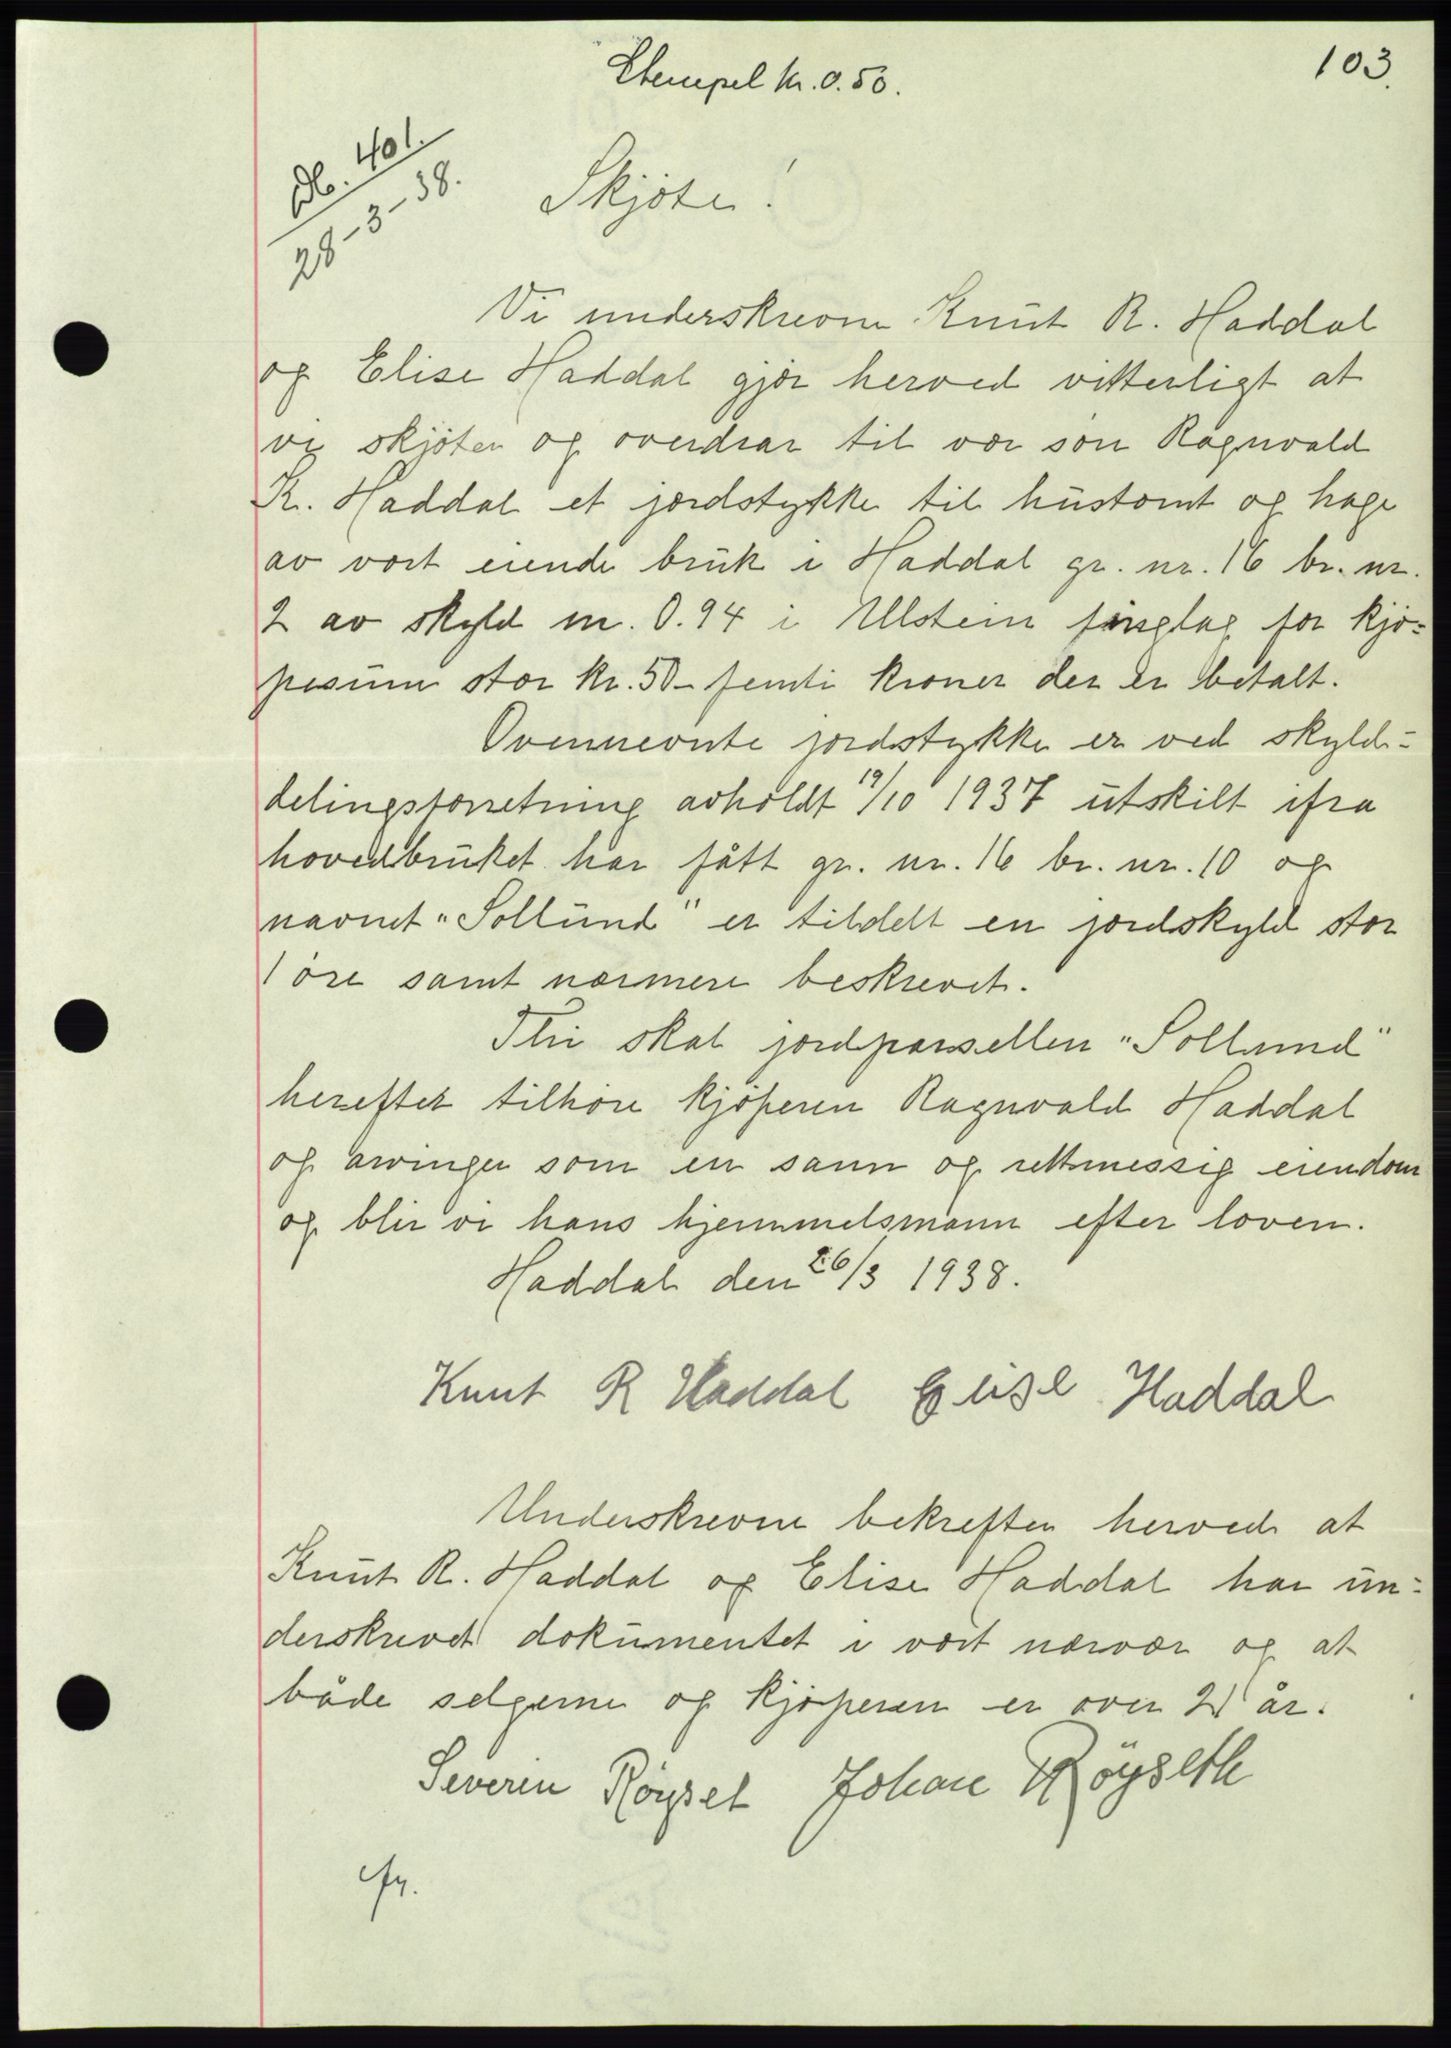 103.
Stempel kr. 0.50.
Db. 401.
28-3-38.
Skjöte!
Vi underskrevne Knut R. Haddal
og Elise Haddal gjör herved vitterligt at
vi skjöter og overdrar til vor sön Ragnvald
K. Haddal et jordstykke til hustomt og hage
av vort eiende bruk i Haddal gr. nr. 16 br. nr.
2 av skyld m. 0.94 i Ulstein tinglag for kjö-
pesum stor kr. 50 - femti kroner der er betalt.
Ovennevnte jordstykke er ved skyld-
delingsforretning avholdt 19/10 1937 utskilt ifra
hovedbruket har fått gr. nr. 16 br. nr. 10 og
navnet "Sollund" er tildelt en jordskyld stor
1 öre samt nærmere beskrevet.
Thi skal jordparsellen "Sollund"
herefter tilhöre kjöperen Ragnvald Haddal
og arvinger som en sann og rettmessig eiendom
og blir vi hans hjemmelsmann efter loven.
Haddal den 26/3 1938.
Knut R Haddal Elise Haddal
Underskrevne bekrefter herved at
Knut R. Haddal og Elise Haddal har un-
derskrevet dokumentet i vort nærvær og at
både selgerne og kjöperen er over 21 år.
Severin Röyset Johan Röyseth